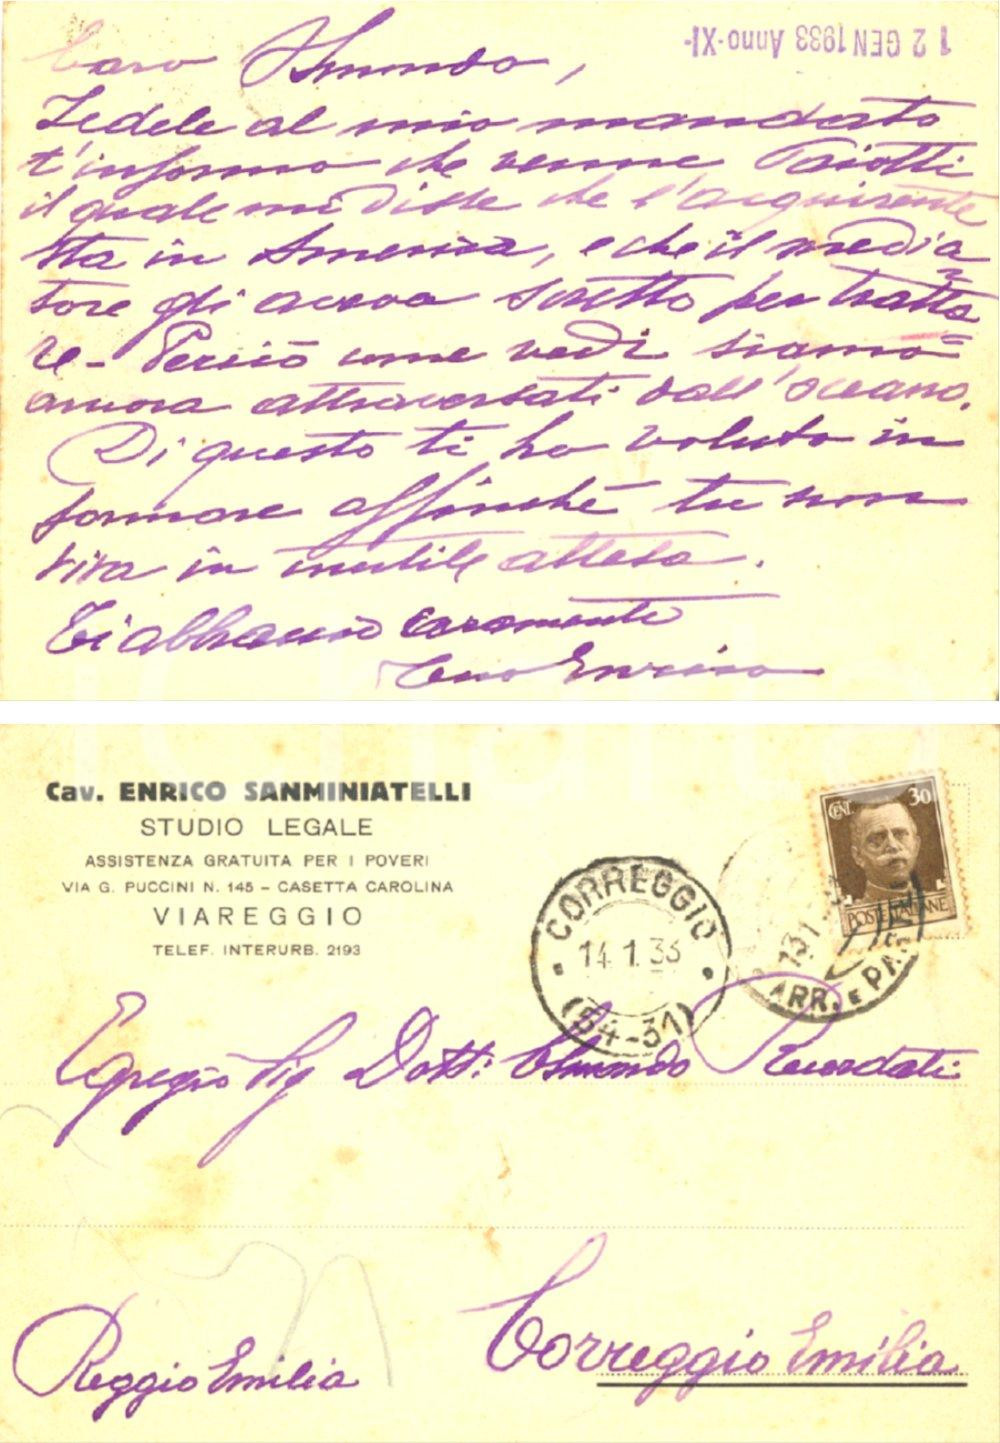 12 GEN 1933 Anno-XI-
Caro Osmundo,
Fedele al mio mandato
t'informo che venne
il quale mi disse che l'acquirente
sta in America, e che il media
tore gli aveva scritto per tratta
re - Perciò come vedi siamo
ancora attraversati dall'oceano.
Di questo ti ho voluto in
formare affinché tu non
viva in inutile attesa.
Ti abbraccio caramente
tuo Enrico
Cav. ENRICO SANMINIATELLI
STUDIO LEGALE
ASSISTENZA GRATUITA PER I POVERI
VIA G. PUCCINI N. 145 - CASETTA CAROLINA
VIAREGGIO
TELEF. INTERURB. 2193
CENT. 30
POSTE ITALIANE
CORREGGIO
14.1.33
(54-31)
13.1
ARR. E PA
Egregio Sig Dott: Osmundo Recordati
Correggio Emilia
Reggio Emilia